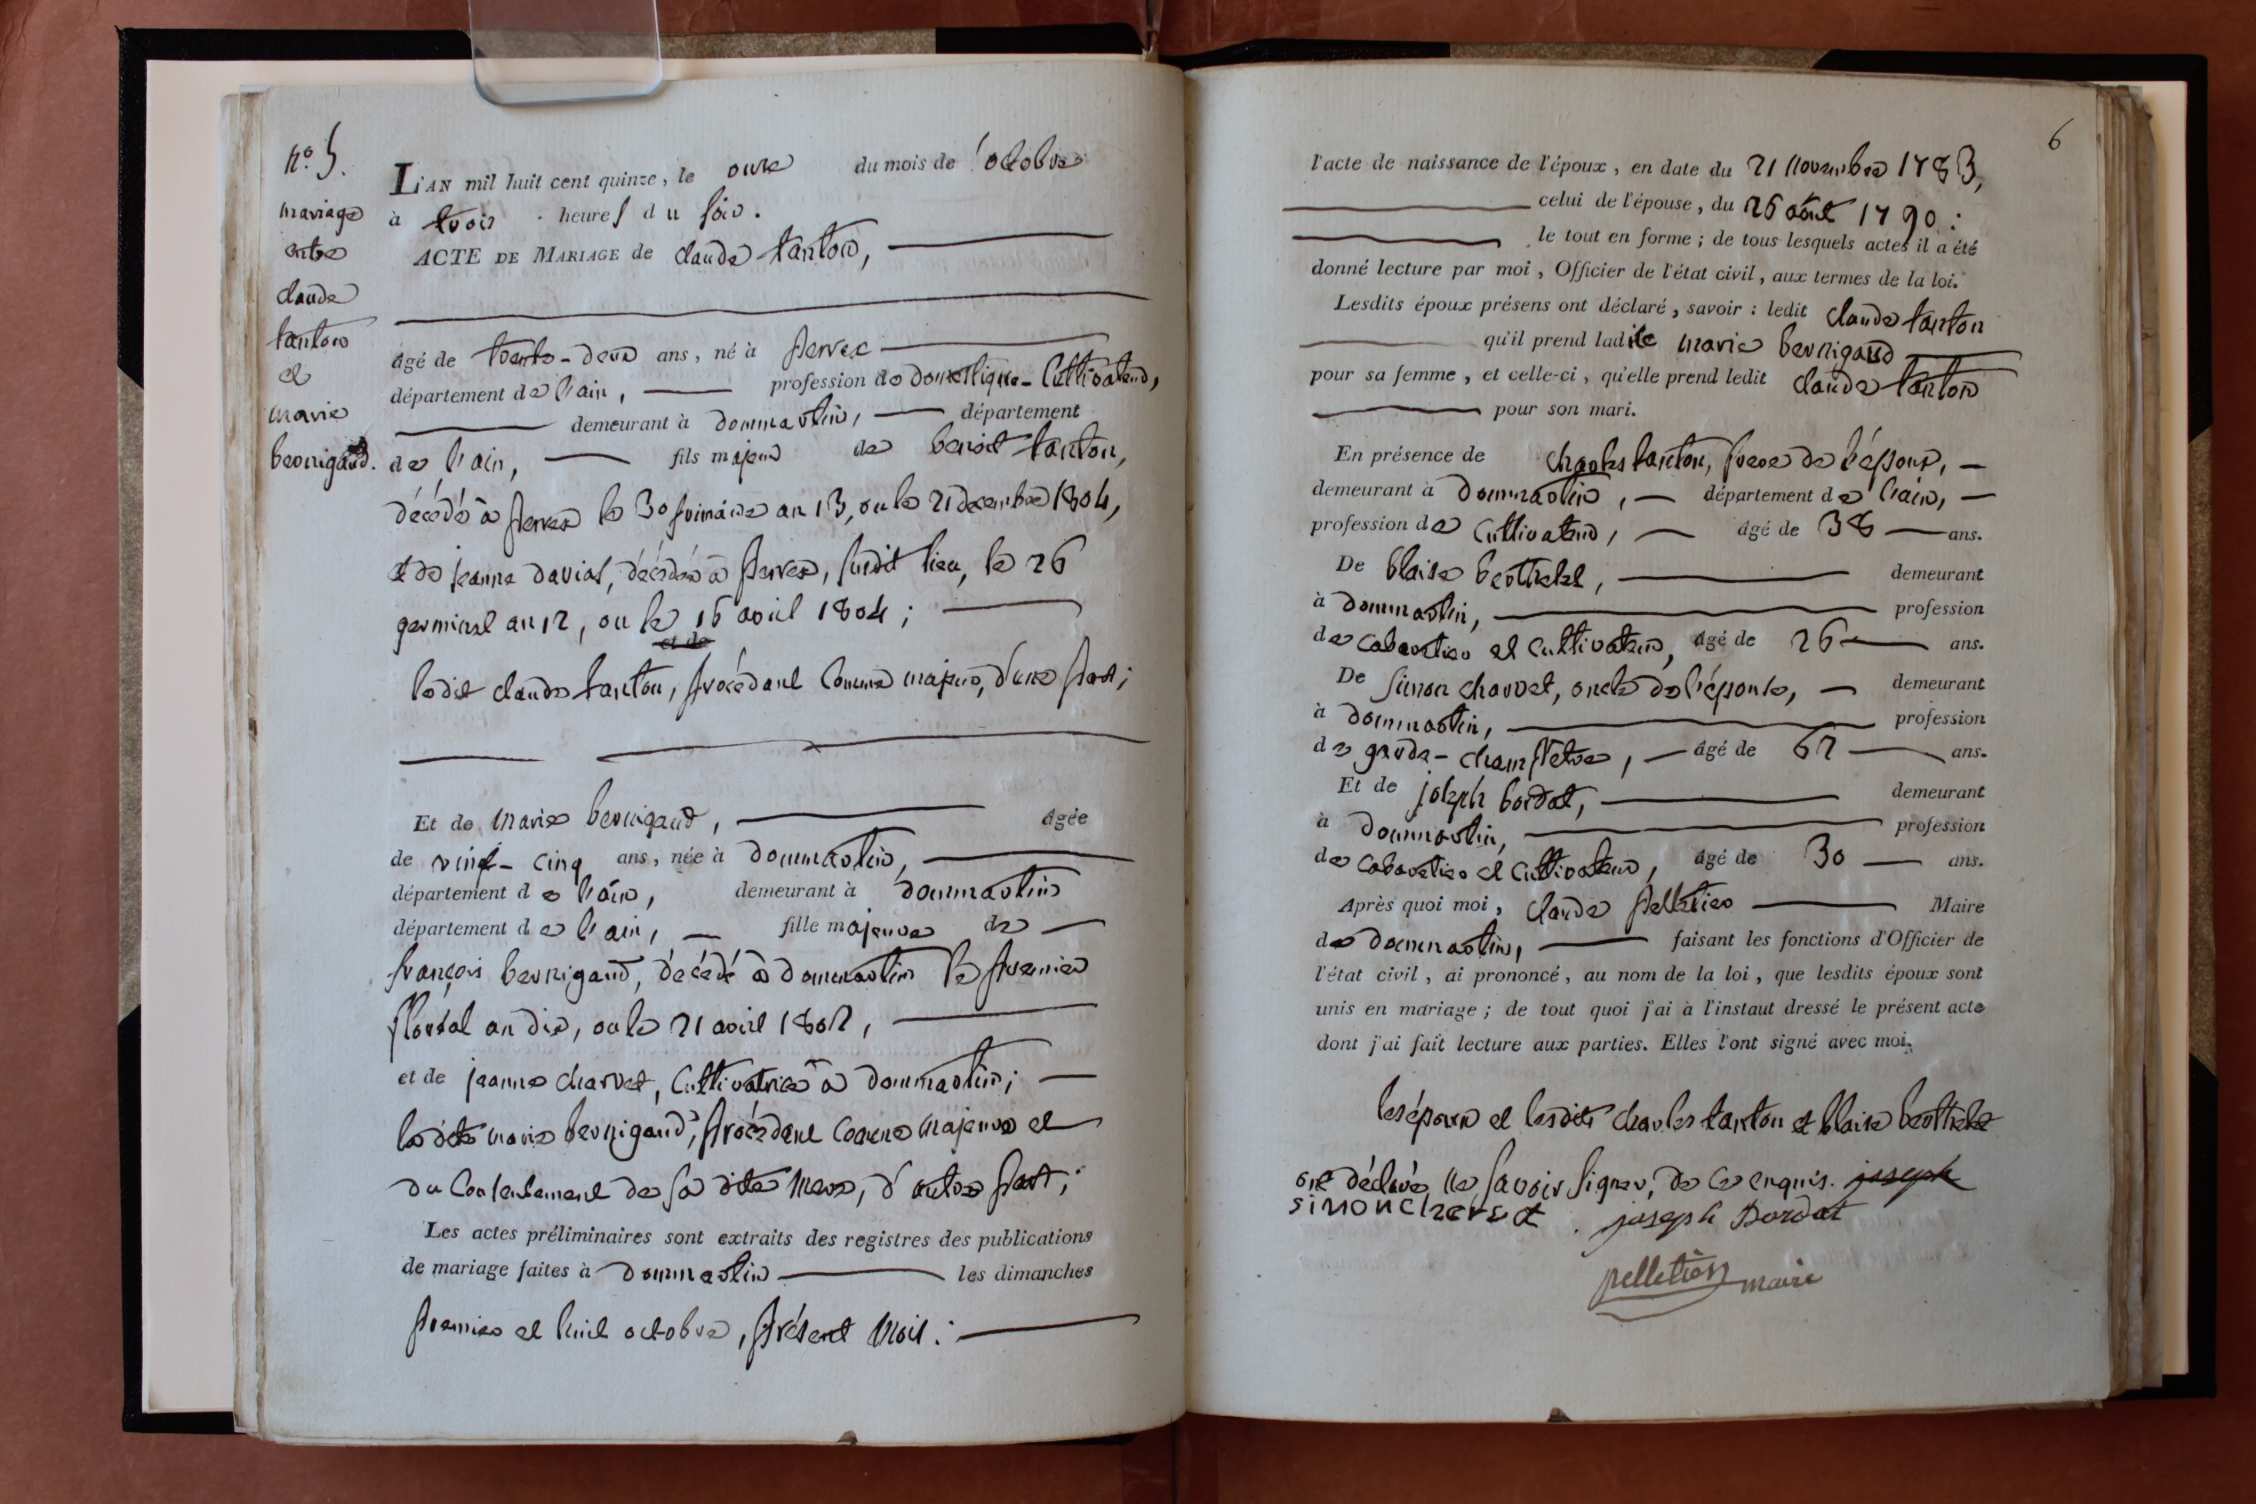 n.° 5.
mariage
entre
claude
tanton
et
marie
bernigaud.
L'AN mil huit cent quinze, le onze du mois de octobre
à trois heures du soir.
ACTE DE MARIAGE de claude tanton,
âgé de trente-deux ans, né à perrex
département de l'ain, profession de domestique-cultivateur,
demeurant à dommartin, département
de l'ain, fils majeur de benoit tanton,
décédé à perrex le 30 frimaire an 13, ou le 21 decembre 1804,
et de jeanne davial, décédée à perrex, susdit lieu, le 26
germinal an 12, ou le 16 avril 1804;
et de
ledit claude tanton, procédant comme majeur, d'une part;
Et de marie bernigaud, âgée
de vint-cinq ans, née à dommartin,
département de l'ain, demeurant à dommartin
département de l'ain, fille majeure de
françois bernigaud, décédé à dommartin le premier
floréal an dix, ou le 21 avril 1802,
et de jeanne charvet, cultivatrice à dommartin;
la dite marie bernigaud, procédant comme majeure et
du consentement de sa dite mere, d'autre part;
Les actes préliminaires sont extraits des registres des publications
de mariage faites à dommartin les dimanches
premier et huit octobre, présent mois:
6
l'acte de naissance de l'époux, en date du 21 novembre 1783,
celui de l'épouse, du 26 août 1790:
le tout en forme; de tous lesquels actes il a été
donné lecture par moi, Officier de l'état civil, aux termes de la loi.
Lesdits époux présens ont déclaré, savoir: ledit claude tanton
qu'il prend ladite marie bernigaud
pour sa femme, et celle-ci, qu'elle prend ledit claude tanton
pour son mari.
En présence de charles tanton, frere de l'époux,
demeurant à dommartin, département de l'ain,
profession de cultivateur, âgé de 38 ans.
De blaise berthelet, demeurant
à dommartin, profession
de cabaretier et cultivateur, âgé de 26 ans.
De simon charvet, oncle de l'épouse, demeurant
à dommartin, profession
de garde-champêtre, âgé de 62 ans.
Et de joseph bordat, demeurant
à dommartin, profession
de cabaretier et cultivateur, âgé de 30 ans.
Après quoi moi, claude pelletier Maire
de dommartin, faisant les fonctions d'Officier de
l'état civil, ai prononcé, au nom de la loi, que lesdits époux sont
unis en mariage; de tout quoi j'ai à l'instaut dressé le présent acte
dont j'ai fait lecture aux parties. Elles l'ont signé avec moi.
les époux et lesdits charles tanton et blaise berthelet
ont déclaré ne savoir signer, de ce enquis. joseph
simon charvet joseph Bordat
pelletier maire